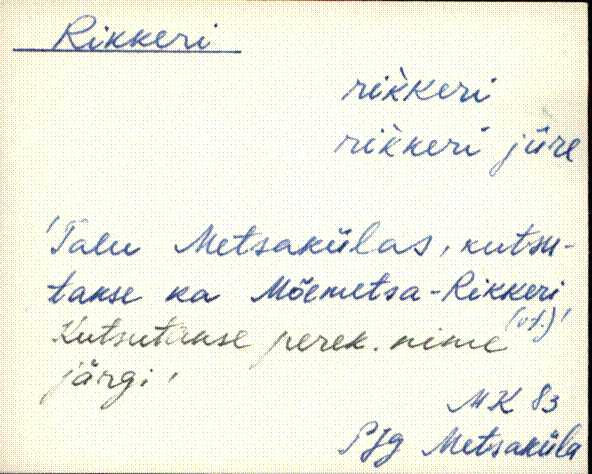 Rikkeri
rik̀keri
rik̀keri jüre
'Talu Metsakülas, kutsu-
takse ka Mõemetsa-Rikkeri
(vt.)'
Kutsutakse perek. nime
järgi'
MK 83
PJg Metsaküla